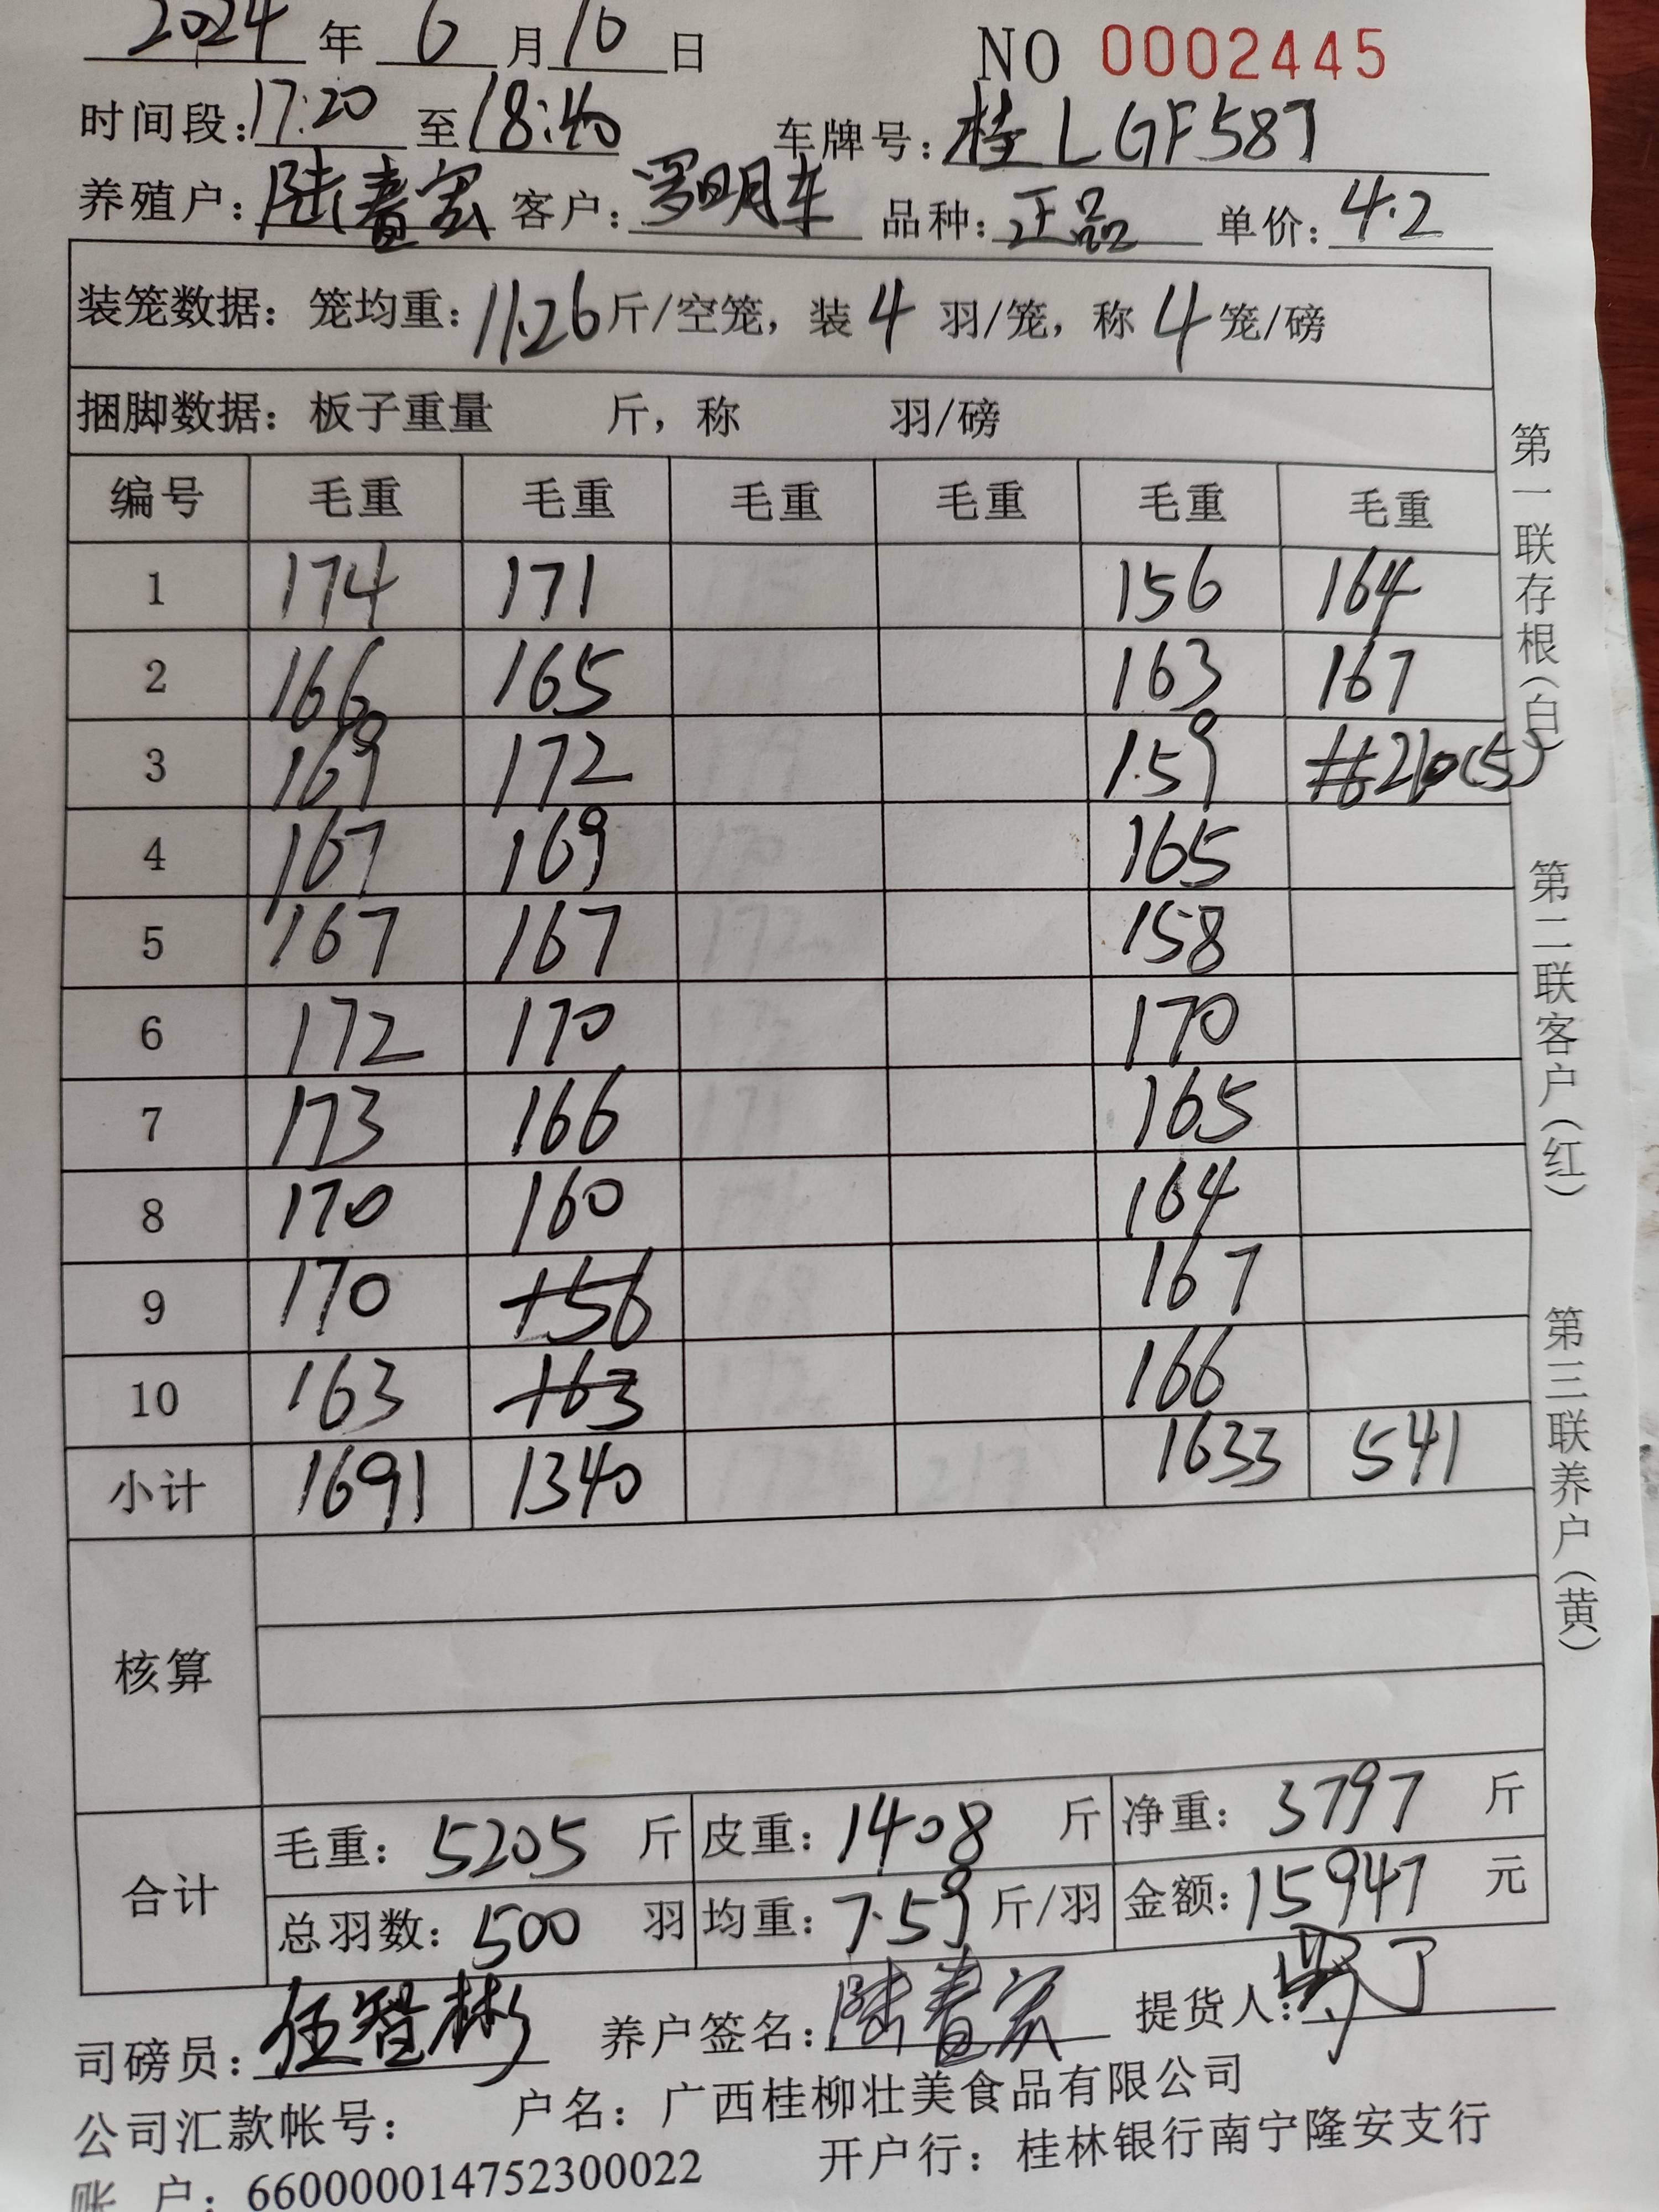 2024 年 6 月 10 日 NO 0002445
时间段: 17:20 至 18:40 车牌号: 桂LGF587
养殖户: 陆春宏 客户: 罗明车 品种: 正品 单价: 4.2
装笼数据: 笼均重: 11.26 斤/空笼, 装 4 羽/笼, 称 4 笼/磅
捆脚数据: 板子重量 斤, 称 羽/磅
编号 毛重 毛重 毛重 毛重 毛重 毛重
1 174 171 156 164
2 166 165 163 167
3 169 172 159 210(5)
4 167 169 165
5 167 167 158
6 172 170 170
7 173 166 165
8 170 160 164
9 170 156 167
10 163 163 166
小计 1691 1340 1633 541
核算
合计 毛重: 5205 斤 皮重: 1408 斤 净重: 3797 斤
总羽数: 500 羽 均重: 7.59 斤/羽 金额: 15947 元
司磅员: 伍智彬 养户签名: 陆春宏 提货人:
公司汇款帐号: 户名: 广西桂柳壮美食品有限公司
账 户: 660000014752300022 开户行: 桂林银行南宁隆安支行
第一联存根(白) 第二联客户(红) 第三联养户(黄)